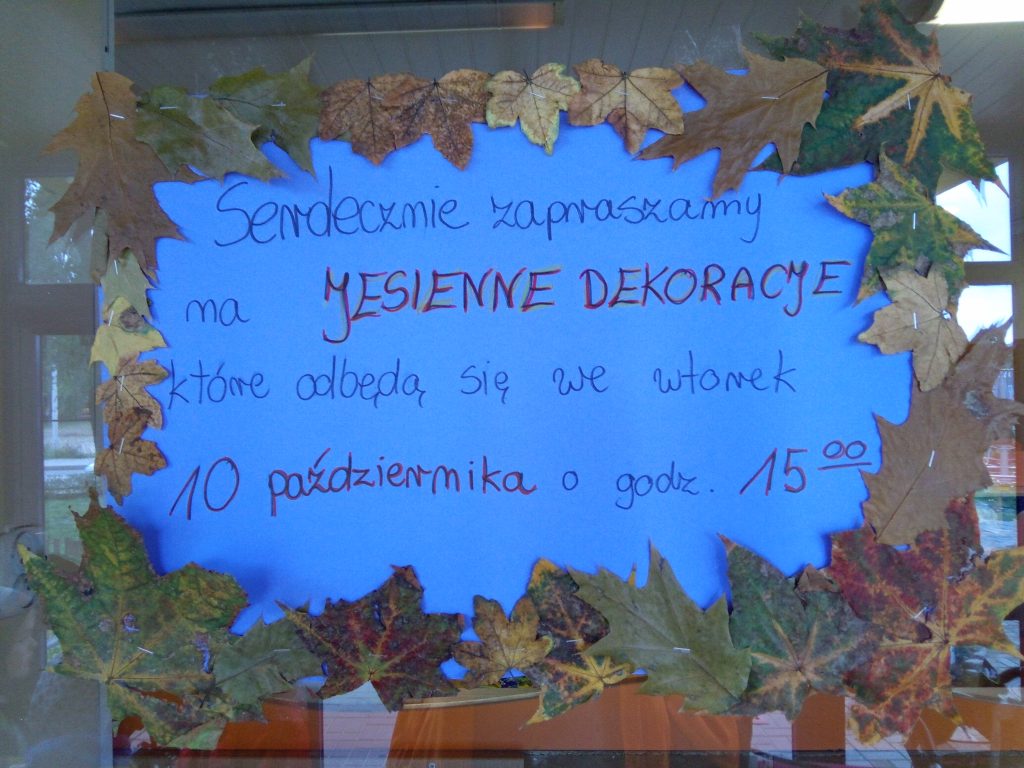 Serdecznie zapraszamy
na JESIENNE DEKORACJE
które odbędą się we wtorek
10 października o godz. 15⁰⁰